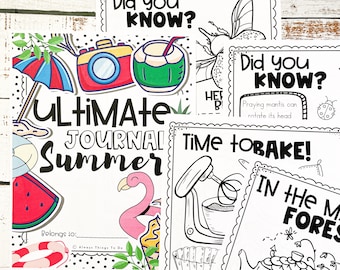 Did you
KNOW?
HE
B
Did you
KNOW?
Praying mantis can
rotate its head
ULTIMATE
JOURNAL
Summer
Belongs to:
© Always Things To Do
Time to BAKE!
IN THE M
FORES